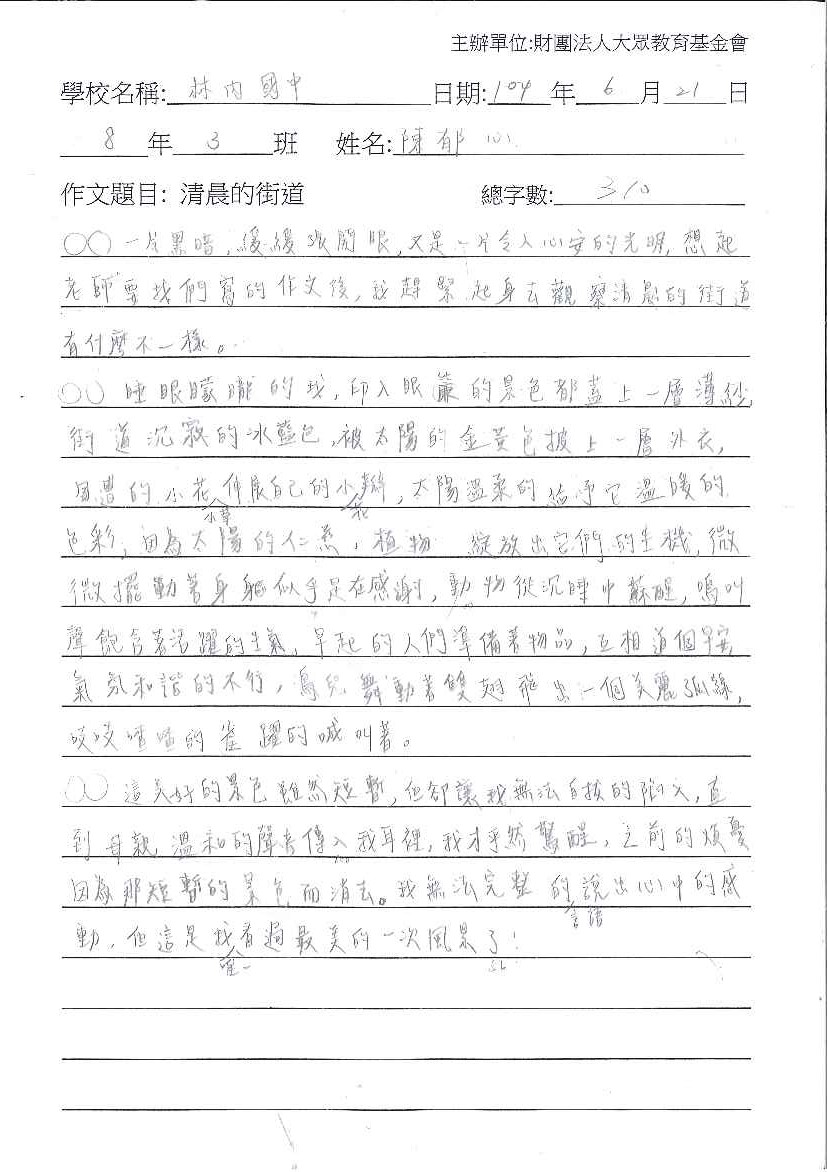 主辦單位:財團法人大眾教育基金會
學校名稱: 林內國中 日期: 104 年 6 月 21 日
8 年 3 班 姓名: 陳郁心
作文題目: 清晨的街道 總字數: 310
○○一片黑暗,緩緩張開眼,又是一片令人心安的光明,想起
老師要我們寫的作文後,我趕緊起身去觀察清晨的街道
有什麼不一樣。
○○睡眼矇矓的我,印入眼簾的景色都蓋上一層薄紗,
街道沉寂的冰藍色,被太陽的金黃色披上一層外衣,
周遭的小花伸展自己的小瓣,太陽溫柔的給予它溫暖的
花
色彩,因為太陽的仁慈,植物 綻放出它們的生機,微
微擺動著身軀似乎是在感謝,動物從沉睡中蘇醒,鳴叫
聲飽含著活躍的生氣,早起的人們準備著物品,互相道個早安
氣氛和諧的不行,鳥兒舞動著雙翅飛出一個美麗弧線,
吱吱喳喳的雀躍的喊叫著。
○○這美好的景色雖然短暫,但卻讓我無法自拔的陷入,直
到母親溫和的聲音傳入我耳裡,我才乎然驚醒,之前的煩憂
因為那短暫的景色而消去。我無法完整的說出心中的感
言語
動,但這是我看過最美的一次風景了!